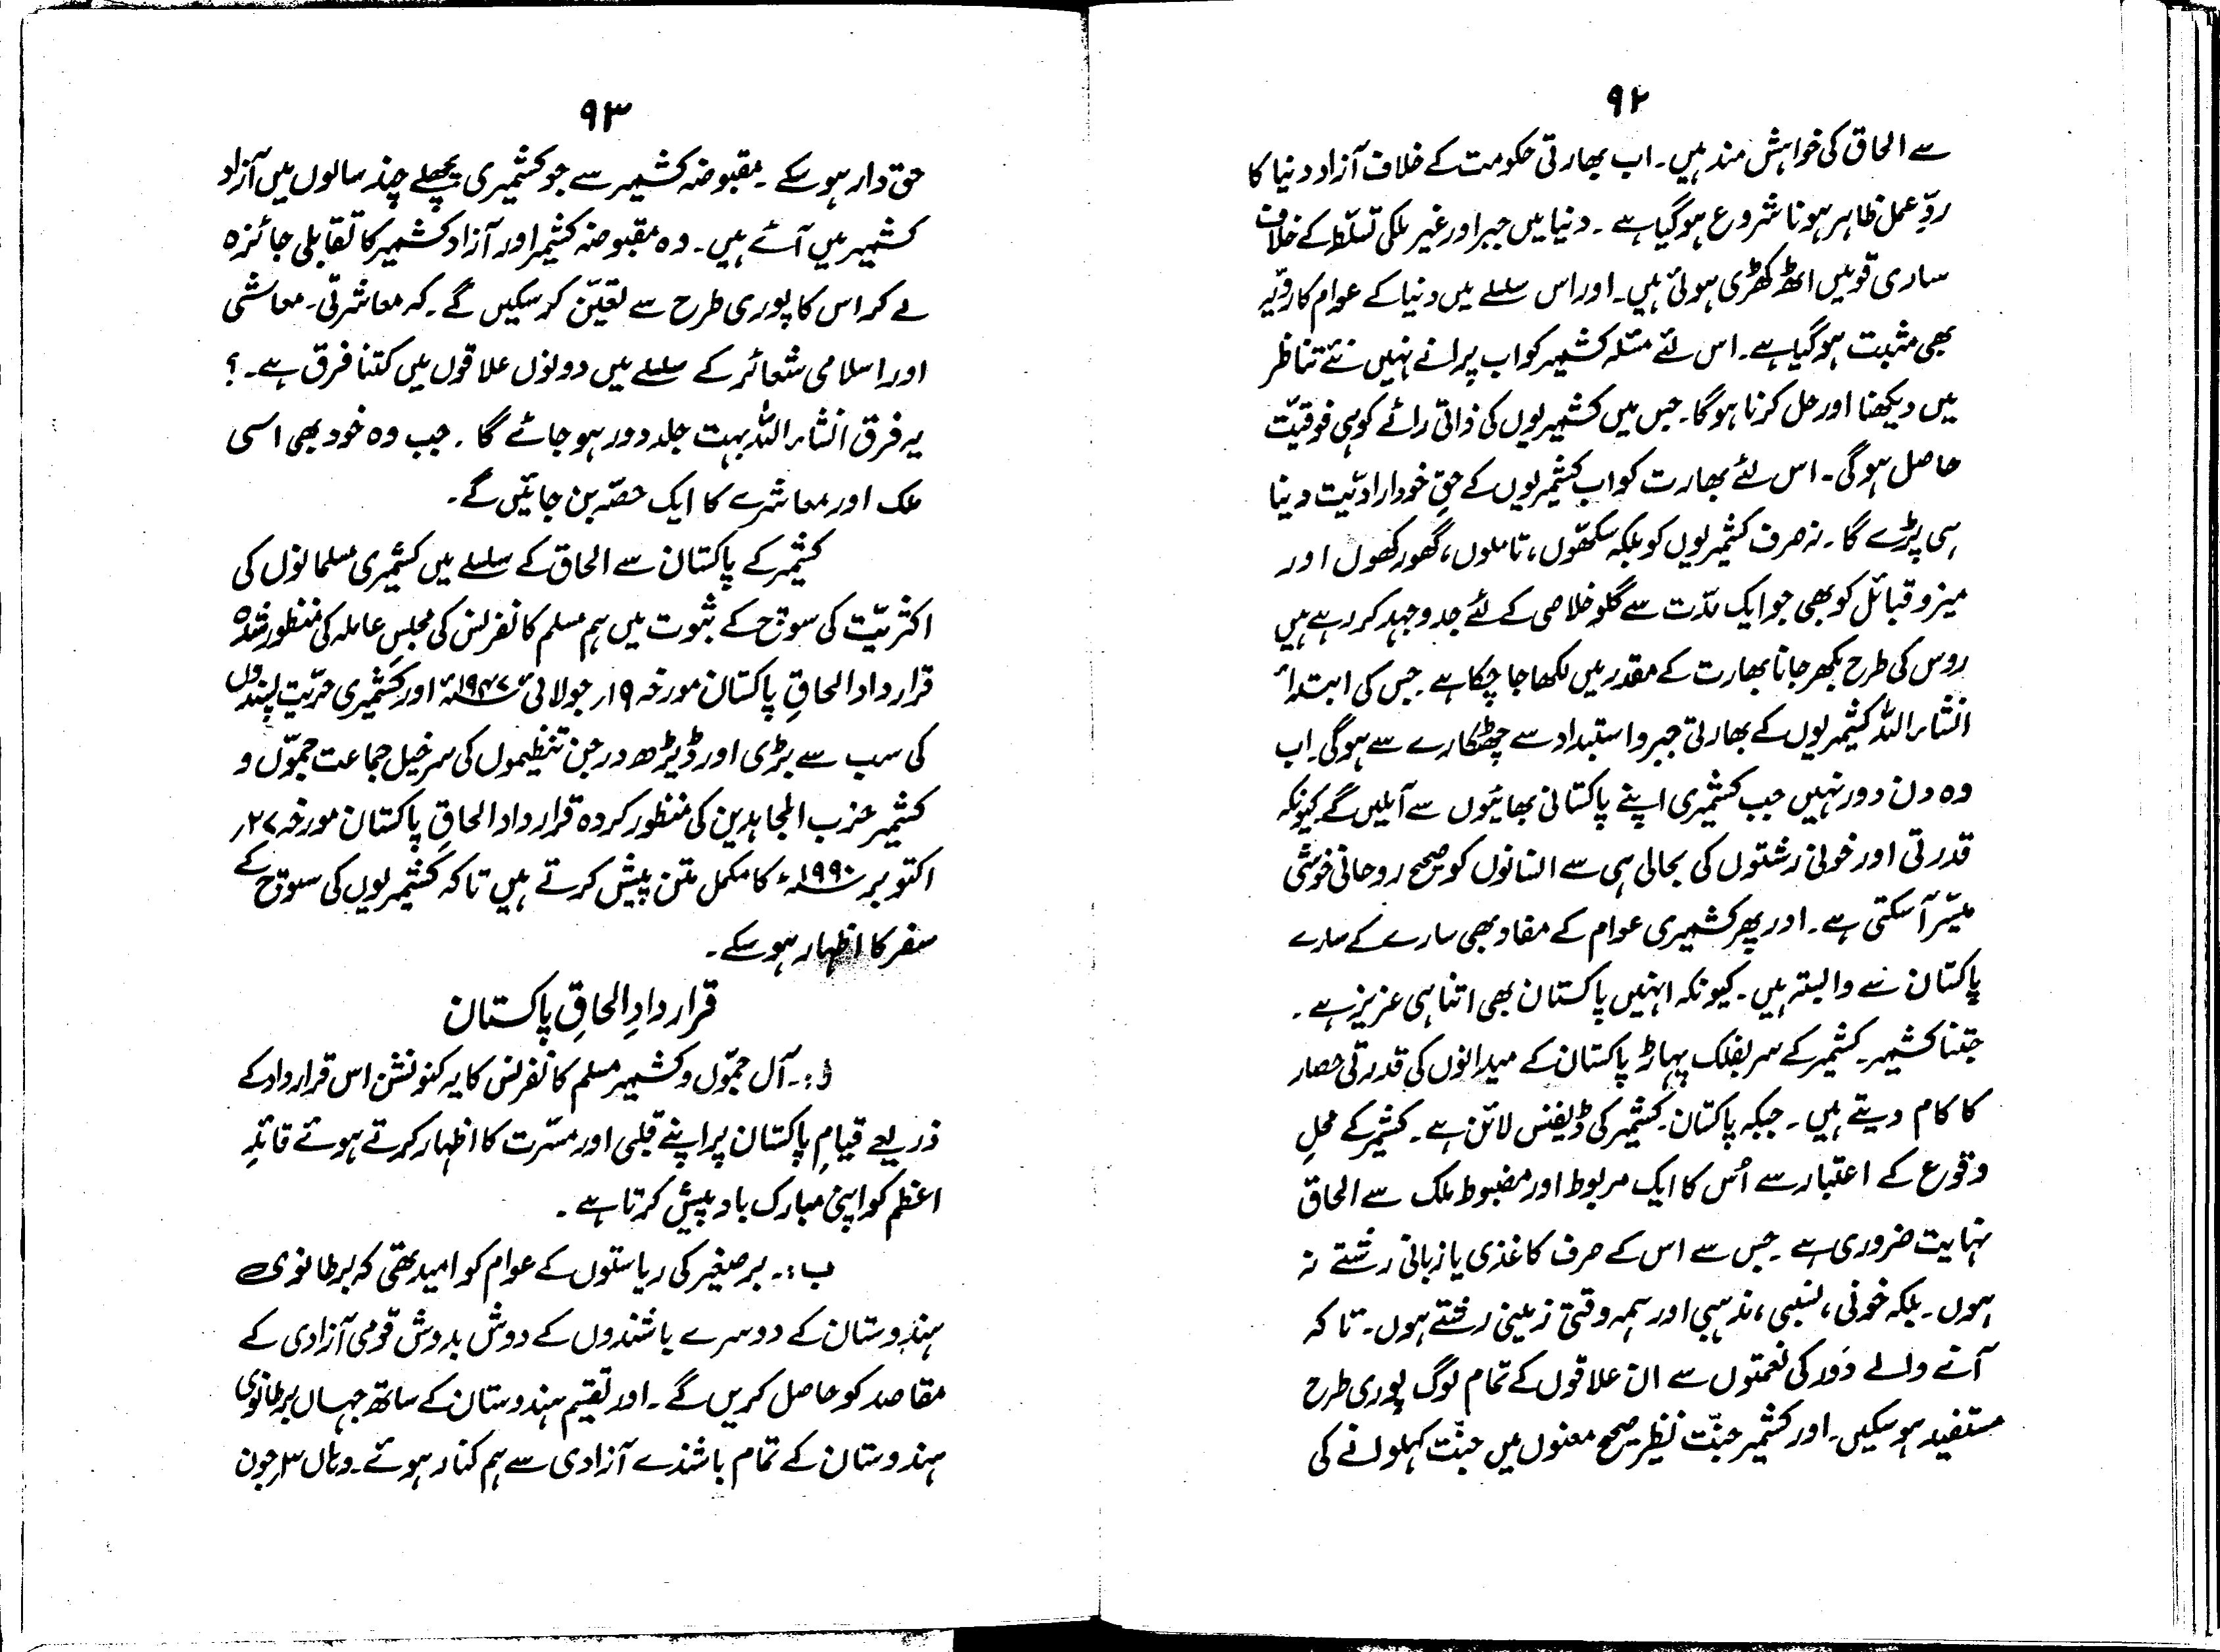 ۹۲
سے الحاق کی خواہش مند ہیں۔ اب بھارتی حکومت کے خلاف آزاد دنیا کا
ردِّ عمل ظاہر ہونا شروع ہوگیا ہے ۔ دنیا میں جبر اور غیر ملکی تسلّط کے خلاف
ساری قومیں اٹھ کھڑی ہوئی ہیں۔ اور اس سلسلے میں دنیا کے عوام کا رویّہ
بھی مثبت ہوگیا ہے۔ اس لئے مسئلہ کشمیر کو اب پرانے نہیں نئے تناظر
میں دیکھنا اور حل کرنا ہوگا۔ جس میں کشمیریوں کی ذاتی رائے کو ہی فوقیّت
حاصل ہوگی۔ اس لئے بھارت کو اب کشمیریوں کے حقِ خودارادیّت دینا
ہی پڑے گا۔ نہ صرف کشمیریوں کو بلکہ سکھّوں، تاملوں، گھورکھوں اور
میزو قبائل کو بھی جو ایک مدّت سے گلو خلاصی کے لئے جدوجہد کر رہے ہیں
روس کی طرح بکھر جانا بھارت کے مقدر میں لکھا جا چکا ہے ۔ جس کی ابتداء
انشاء اللہ کشمیریوں کے بھارتی جبر و استبداد سے چھٹکارے سے ہوگی۔ اب
وہ دن دور نہیں جب کشمیری اپنے پاکستانی بھائیوں سے آملیں گے کیونکہ
قدرتی اور خونی رشتوں کی بحالی ہی سے انسانوں کو صحیح روحانی خوشی
میسّر آسکتی ہے۔ اور پھر کشمیری عوام کے مفاد بھی سارے کے سارے
پاکستان سے وابستہ ہیں۔ کیونکہ انہیں پاکستان بھی اتنا ہی عزیز ہے ۔
جتنا کشمیر۔ کشمیر کے سر بفلک پہاڑ پاکستان کے میدانوں کی قدرتی حصار
کا کام دیتے ہیں ۔ جبکہ پاکستان۔ کشمیر کی ڈیفنس لائن ہے۔ کشمیر کے محلِ
وقوع کے اعتبار سے اُس کا ایک مربوط اور مضبوط ملک سے الحاق
نہایت ضروری ہے ۔ جس سے اس کے صرف کاغذی یا زبانی رشتے نہ
ہوں۔ بلکہ خونی، نسبی، مذہبی اور ہمہ وقتی زمینی رشتے ہوں۔ تاکہ
آنے والے دَور کی نعمتوں سے ان علاقوں کے تمام لوگ پوری طرح
مستفید ہوسکیں۔ اور کشمیر جنّت نظیر صحیح معنوں میں جنّت کہلوانے کی
۹۳
حق دار ہو سکے ۔ مقبوضہ کشمیر سے جو کشمیری پچھلے چند سالوں میں آزاد
کشمیر میں آئے ہیں۔ وہ مقبوضہ کشمیر اور آزاد کشمیر کا تقابلی جائزہ
لے کر اس کا پوری طرح سے تعیّن کر سکیں گے ۔ کہ معاشرتی۔ معاشی
اور اسلامی شعائر کے سلسلے میں دونوں علاقوں میں کتنا فرق ہے۔ ؟
یہ فرق انشاء اللہ بہت جلد دور ہو جائے گا ۔ جب وہ خود بھی اسی
ملک اور معاشرے کا ایک حصّہ بن جائیں گے ۔
کشمیر کے پاکستان سے الحاق کے سلسلے میں کشمیری مسلمانوں کی
اکثریّت کی سوچ کے ثبوت میں ہم مسلم کانفرنس کی مجلسِ عاملہ کی منظور شدہ
قرارداد الحاقِ پاکستان مورخہ ۱۹ر جولائی ۱۹۴۷ء اور کشمیری حرّیت پسندوں
کی سب سے بڑی اور ڈیڑھ درجن تنظیموں کی سرخیل جماعت جمّوں و
کشمیر حزب المجاہدین کی منظور کردہ قرارداد الحاقِ پاکستان مورخہ ۲۷ر
اکتوبر ۱۹۹۰ء کا مکمل متن پیش کرتے ہیں تاکہ کشمیریوں کی سوچ کے
سفر کا اظہار ہو سکے ۔
قرار دادِ الحاقِ پاکستان
ا:۔ آل جمّوں و کشمیر مسلم کانفرنس کا یہ کنونشن اس قرارداد کے
ذریعے قیامِ پاکستان پر اپنے قلبی اور مسّرت کا اظہار کرتے ہوئے قائدِ
اعظم کو اپنی مبارک باد پیش کرتا ہے ۔
ب:۔ برصغیر کی ریاستوں کے عوام کو امید تھی کہ برطانوی
ہندوستان کے دوسرے باشندوں کے دوش بدوش قومی آزادی کے
مقاصد کو حاصل کریں گے ۔ اور تقسیم ہندوستان کے ساتھ جہاں برطانوی
ہندوستان کے تمام باشندے آزادی سے ہم کنار ہوئے۔ وہاں ۳ر جون